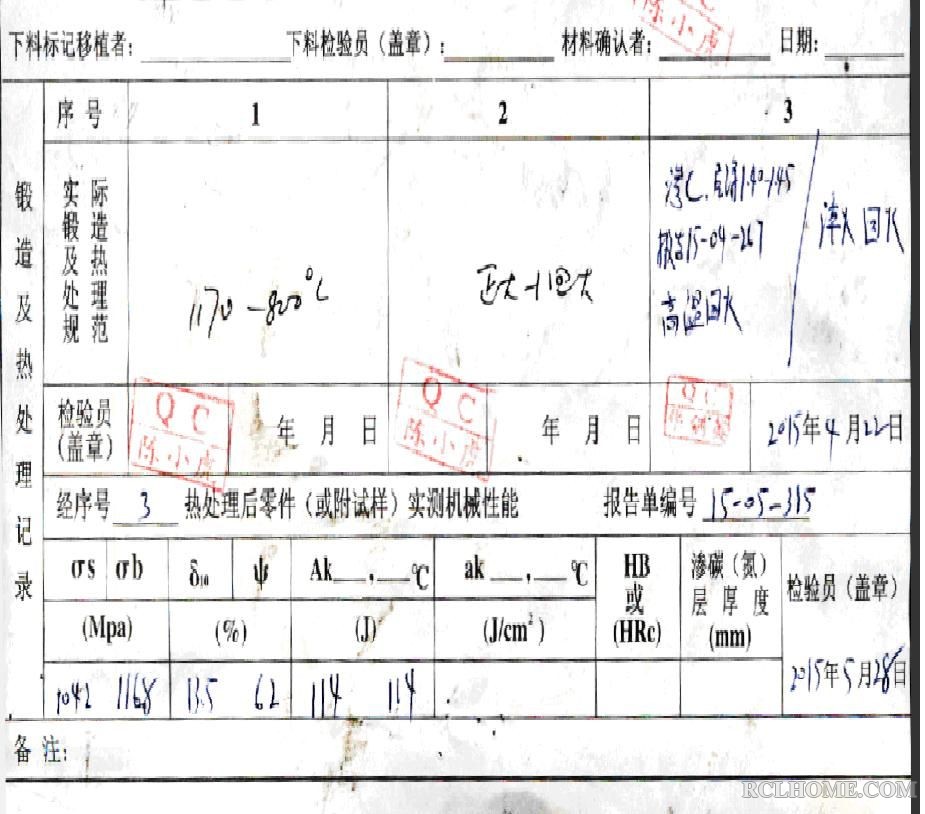 陈小虎
下料标记移植者: 下料检验员(盖章): 材料确认者: 日期:
锻造及热处理记录
序号 1 2 3
实际锻造及热处理规范
1170-800℃
正火+回火
渗C. 1.40-1.45
报告15-04-267
高温回火
淬火 回火
检验员(盖章) QC 陈小虎 年 月 日 QC 陈小虎 年 月 日 QC 2015年4月22日
经序号 3 热处理后零件(或附试样)实测机械性能 报告单编号 15-05-315
σs σb δ10 ψ Ak , ℃ ak , ℃ HB或(HRc) 渗碳(氮)层厚度(mm) 检验员(盖章)
(Mpa) (%) (J) (J/cm²)
1042 1168 13.5 62 114 114 2015年5月28日
备注:
RCLHOME.COM